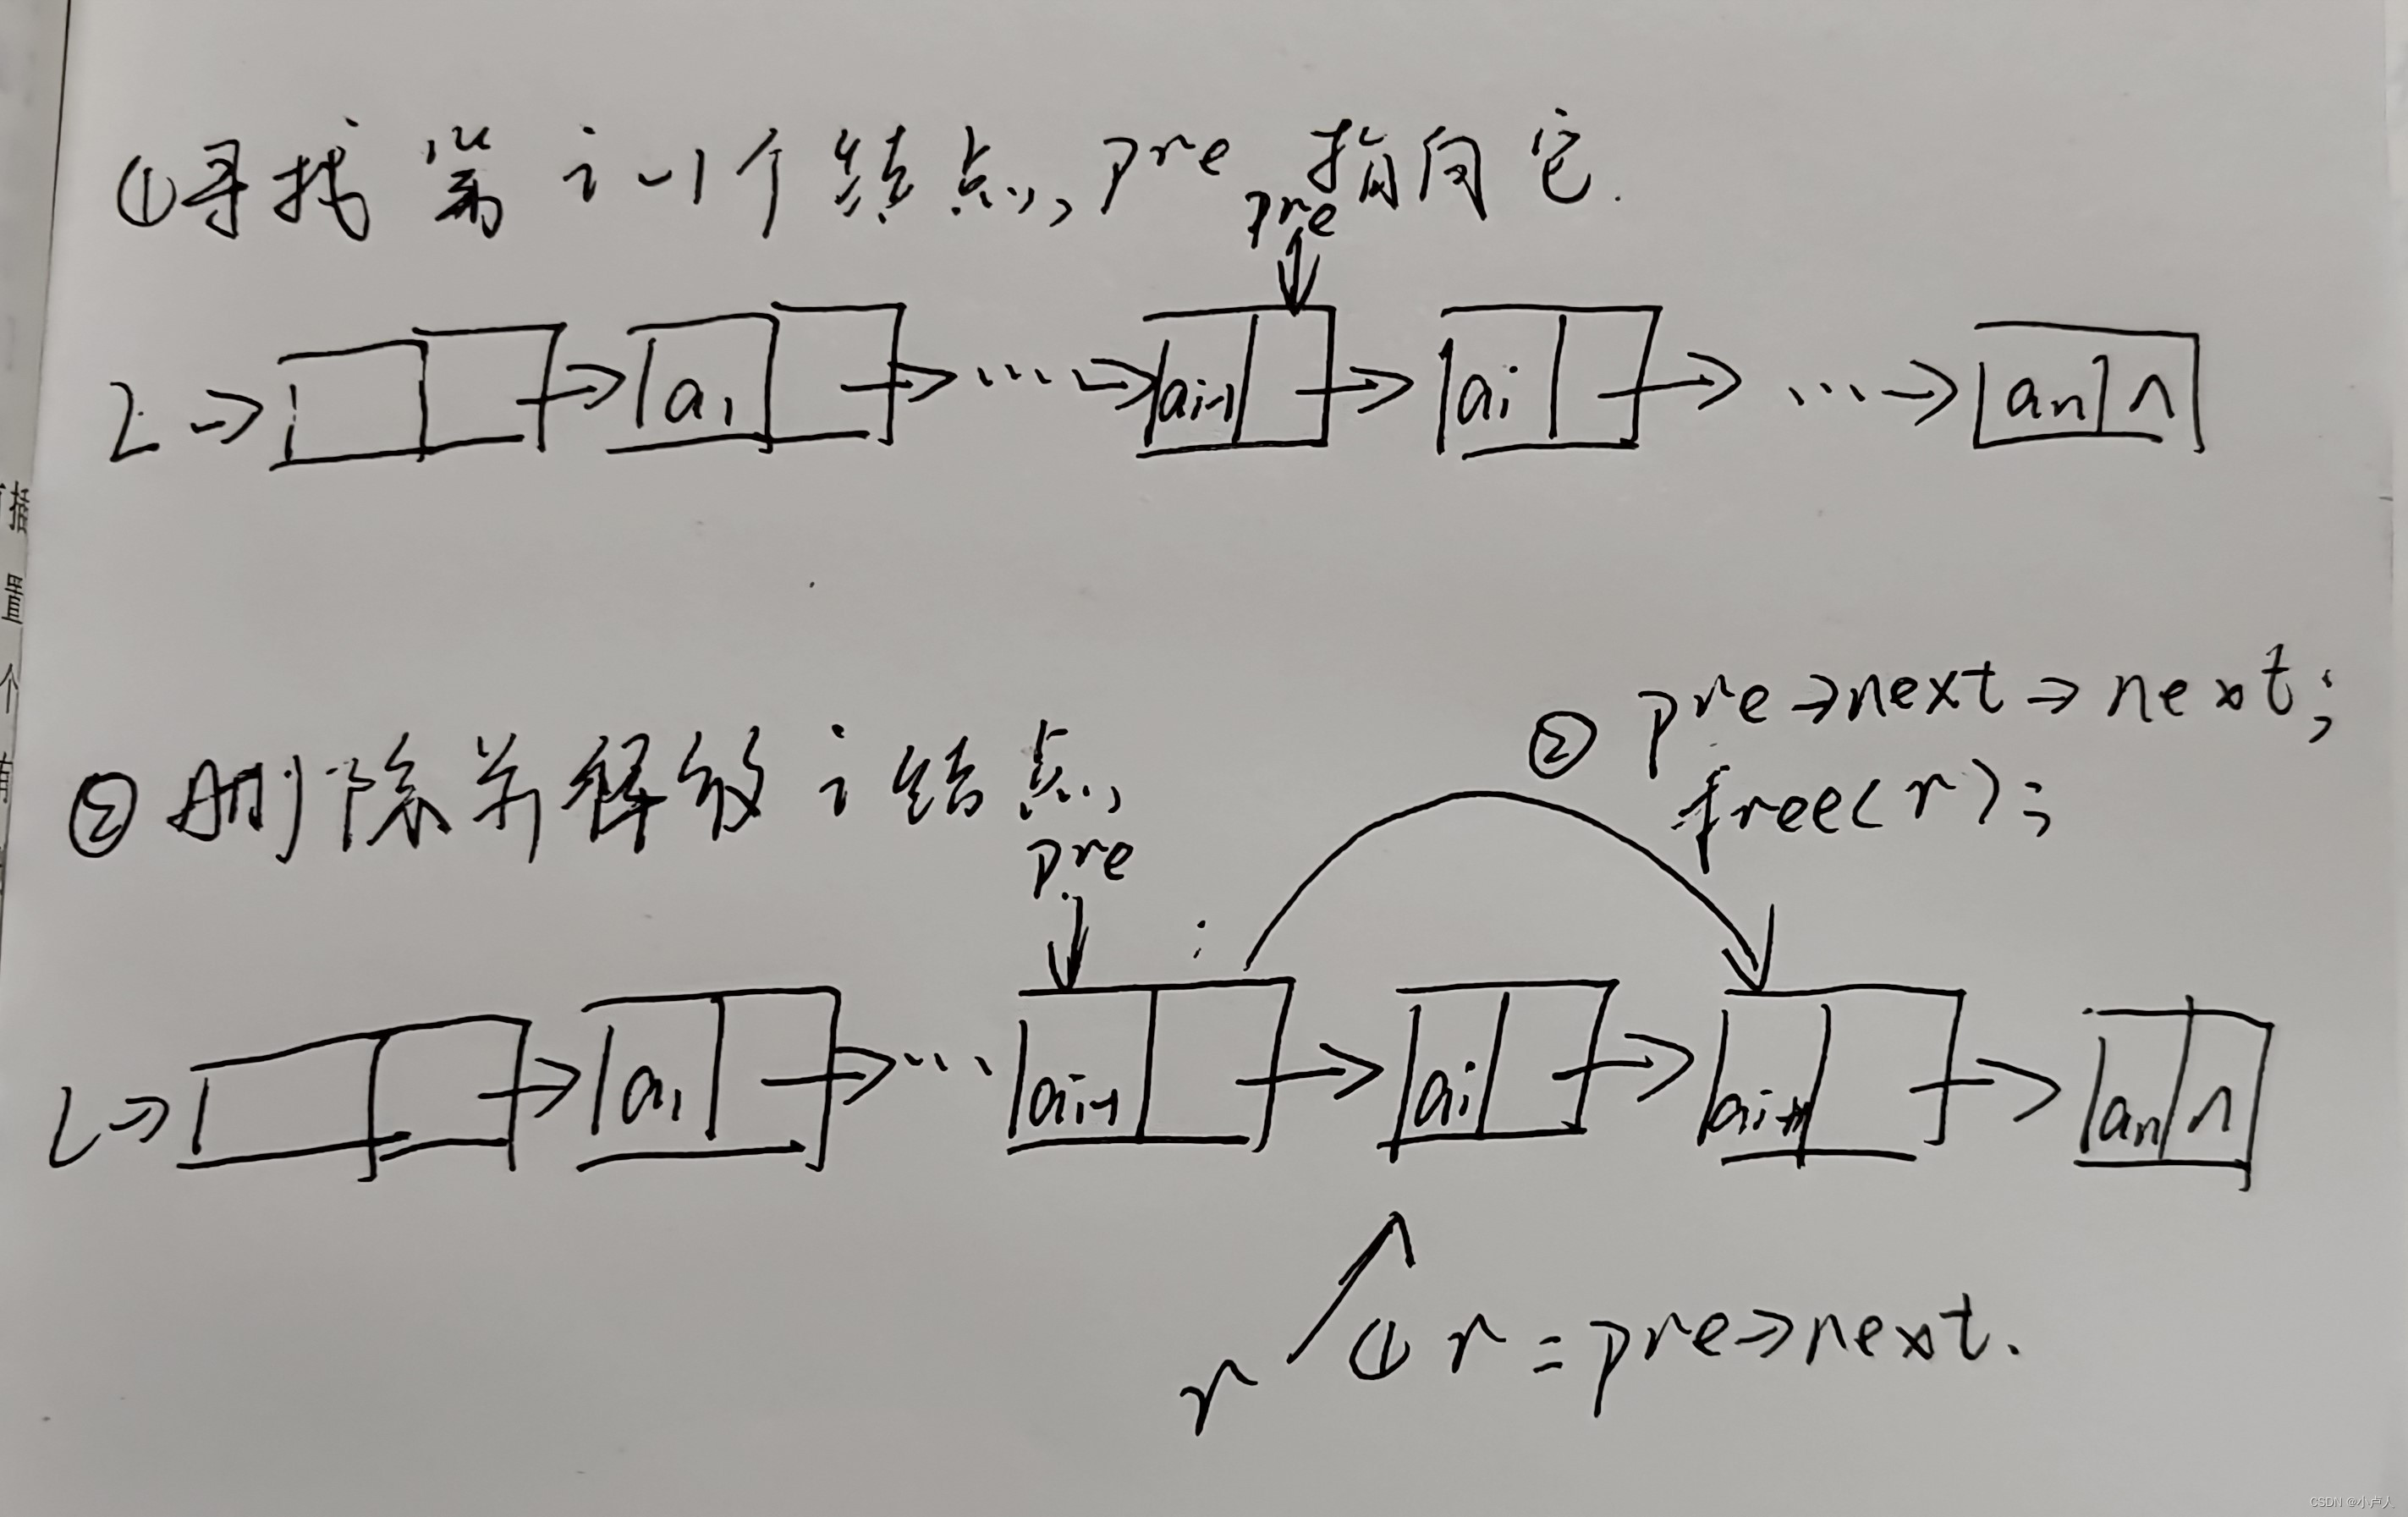 ①寻找第i-1个结点,pre指向它.
pre
L→ a1 → ... → ai-1 → ai → ... → an ∧
②删除并释放i结点,
② pre→next→next;
free(r);
pre
L→ a1 → ... ai-1 → ai → ai+1 → an ∧
r ① r=pre→next.
插
置
个
CSDN @小卢人